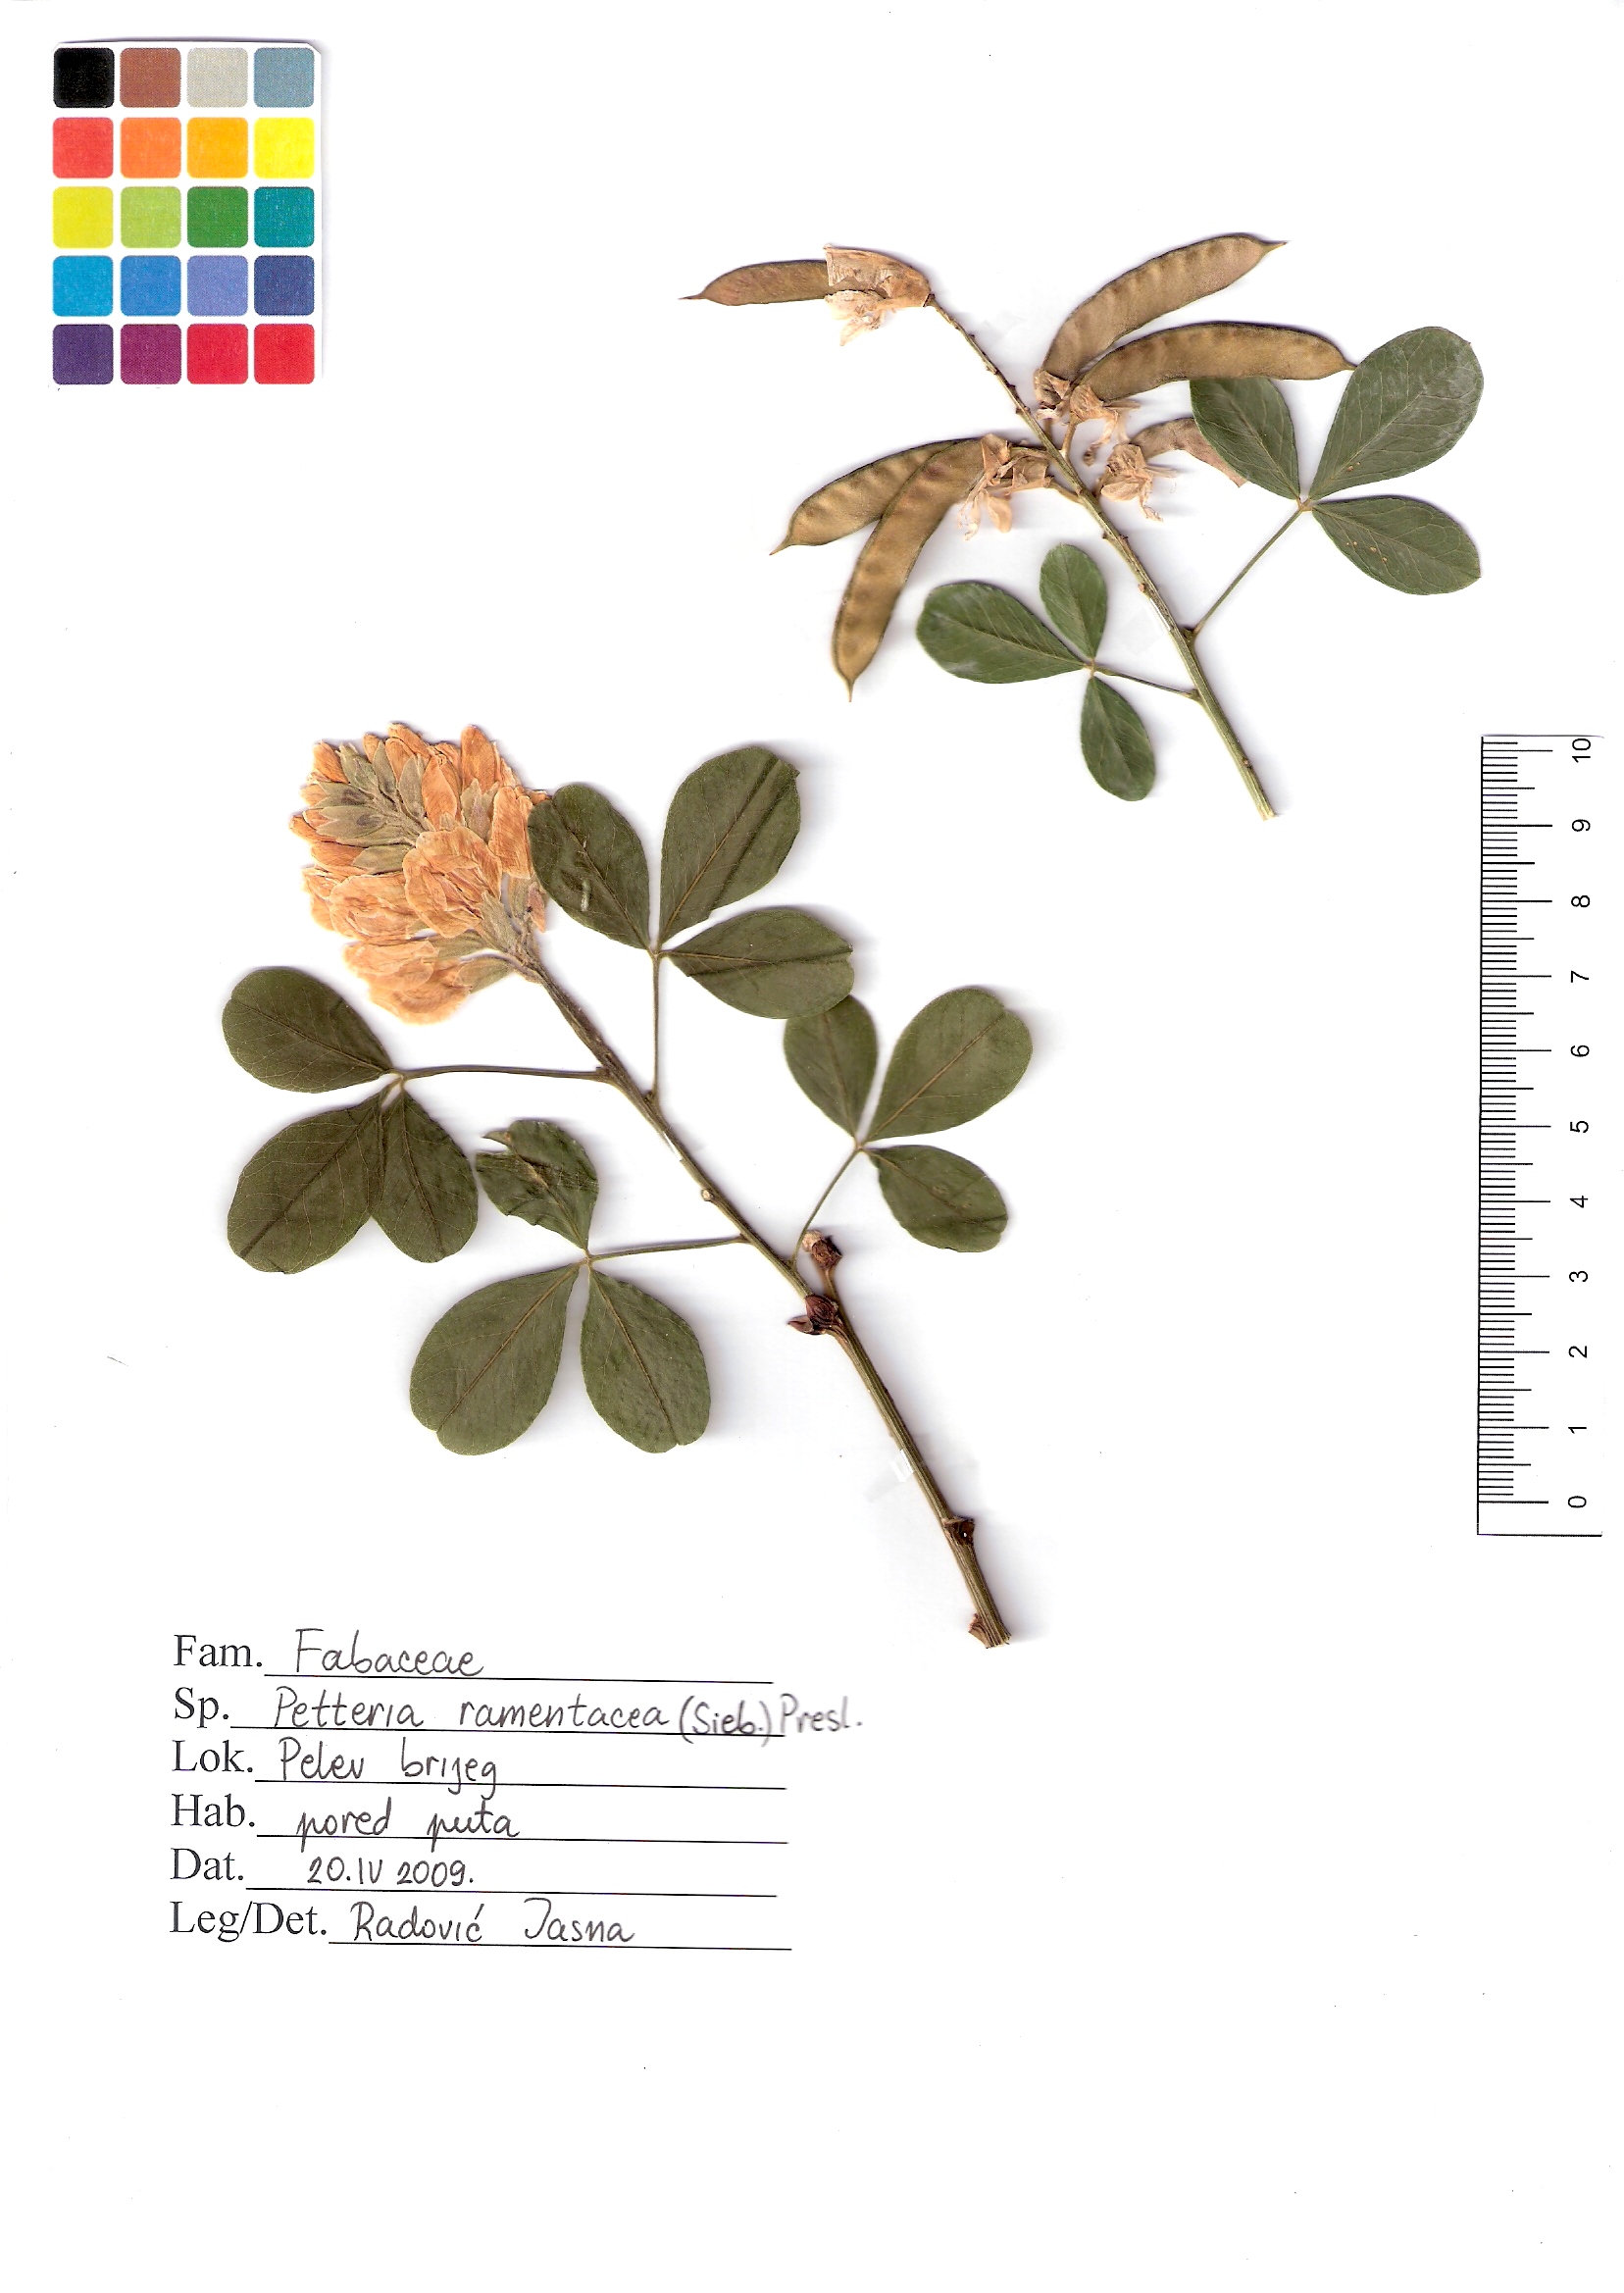 10
9
8
7
6
5
4
3
2
1
0
Fam. Fabaceae
Sp. Petteria ramentacea (Sieb.) Presl.
Lok. Pelev brijeg
Hab. pored puta
Dat. 20.IV 2009.
Leg/Det. Radović Jasna